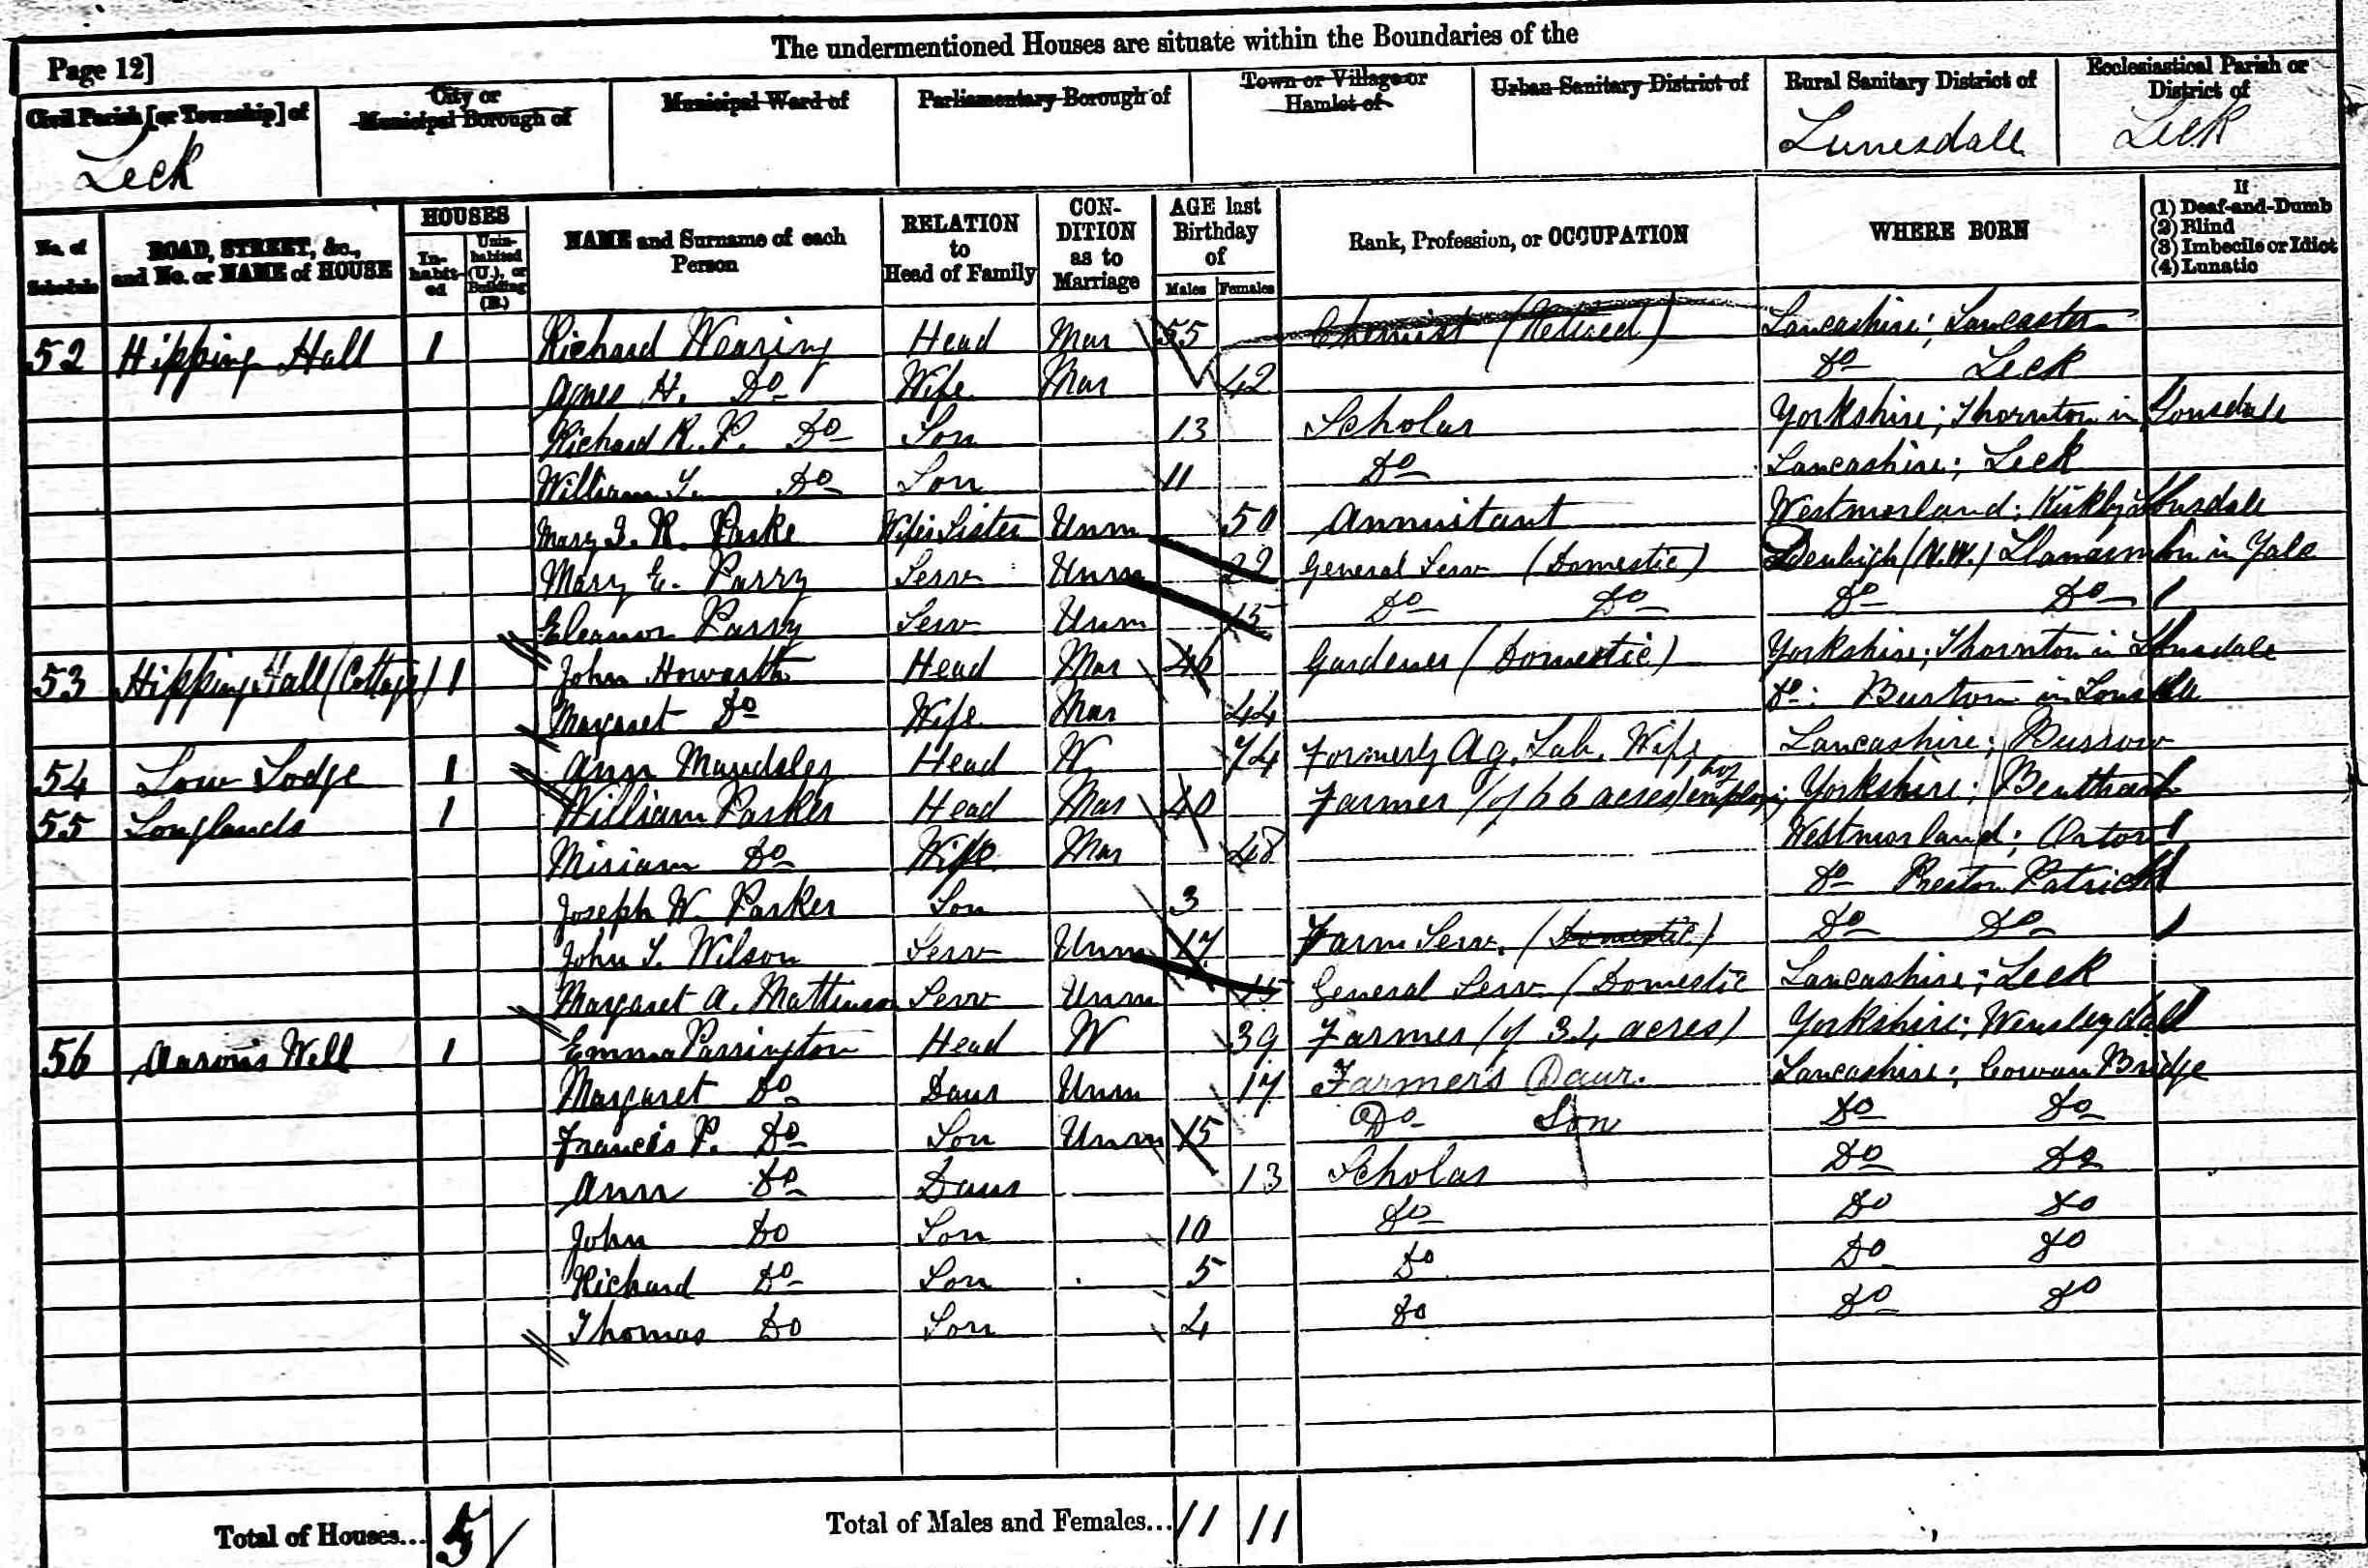 The undermentioned Houses are situate within the Boundaries of the
Page 12]
Civil Parish [or Township] of
City or Municipal Borough of
Municipal Ward of
Parliamentary Borough of
Town or Village or Hamlet of
Urban Sanitary District of
Rural Sanitary District of
Ecclesiastical Parish or District of
Leck
Lunesdale
Leck
No. of Schedule
ROAD, STREET, &c., and No. or NAME of HOUSE
HOUSES
In-habit-ed
Unin-habited (U.), or Building (B.)
NAME and Surname of each Person
RELATION to Head of Family
CON-DITION as to Marriage
AGE last Birthday of
Males
Females
Rank, Profession, or OCCUPATION
WHERE BORN
If
(1) Deaf-and-Dumb
(2) Blind
(3) Imbecile or Idiot
(4) Lunatic
52 Hipping Hall 1 Richard Wearing Head Mar 55 Chemist (Retired) Lancashire; Lancaster
Agnes H. Do Wife Mar 42 Do Leck
Richard R. P. Do Son 13 Scholar Yorkshire; Thornton in Lonsdale
William Do Son 11 Do Lancashire; Leck
Mary R. Wife's Sister Unm 50 Annuitant Westmorland; Kirkby Lonsdale
Mary E. Parry Serv Unm 22 General Serv (Domestic) Denbigh (N.W.) Llanarmon in Yale
Eleanor Parry Serv Unm 15 Do Do Do Do
53 Hipping Hall (Cottage) 1 John Howarth Head Mar 46 Gardener (Domestic) Yorkshire; Thornton in Lonsdale
Margaret Do Wife Mar 44 Do: Burton in Lonsdale
54 Low Lodge 1 Ann Maudsley Head W 74 Formerly Ag. Lab. Wife Lancashire; Burrow
55 Longlands 1 William Parker Head Mar 40 Farmer (of 66 acres) employ boy Yorkshire; Bentham
Miriam Do Wife Mar 48 Westmorland; Orton
Joseph W. Parker Son 3 Do Preston Patrick
John T. Wilson Serv Unm 17 Farm Serv. (Domestic) Do Do
Margaret A. Mattinson Serv Unm 15 General Serv (Domestic Lancashire; Leck
56 Aaron's Well 1 Emma Parrington Head W 39 Farmer (of 34 acres) Yorkshire; Wensleydall
Margaret Do Daur Unm 17 Farmers Daur. Lancashire; Cowan Bridge
Francis P. Do Son Unm 15 Do Son Do Do
Ann Do Daur 13 Scholar Do Do
John Do Son 10 Do Do Do
Richard Do Son 5 Do Do Do
Thomas Do Son 4 Do Do Do
Total of Houses... 5
Total of Males and Females... 11 11